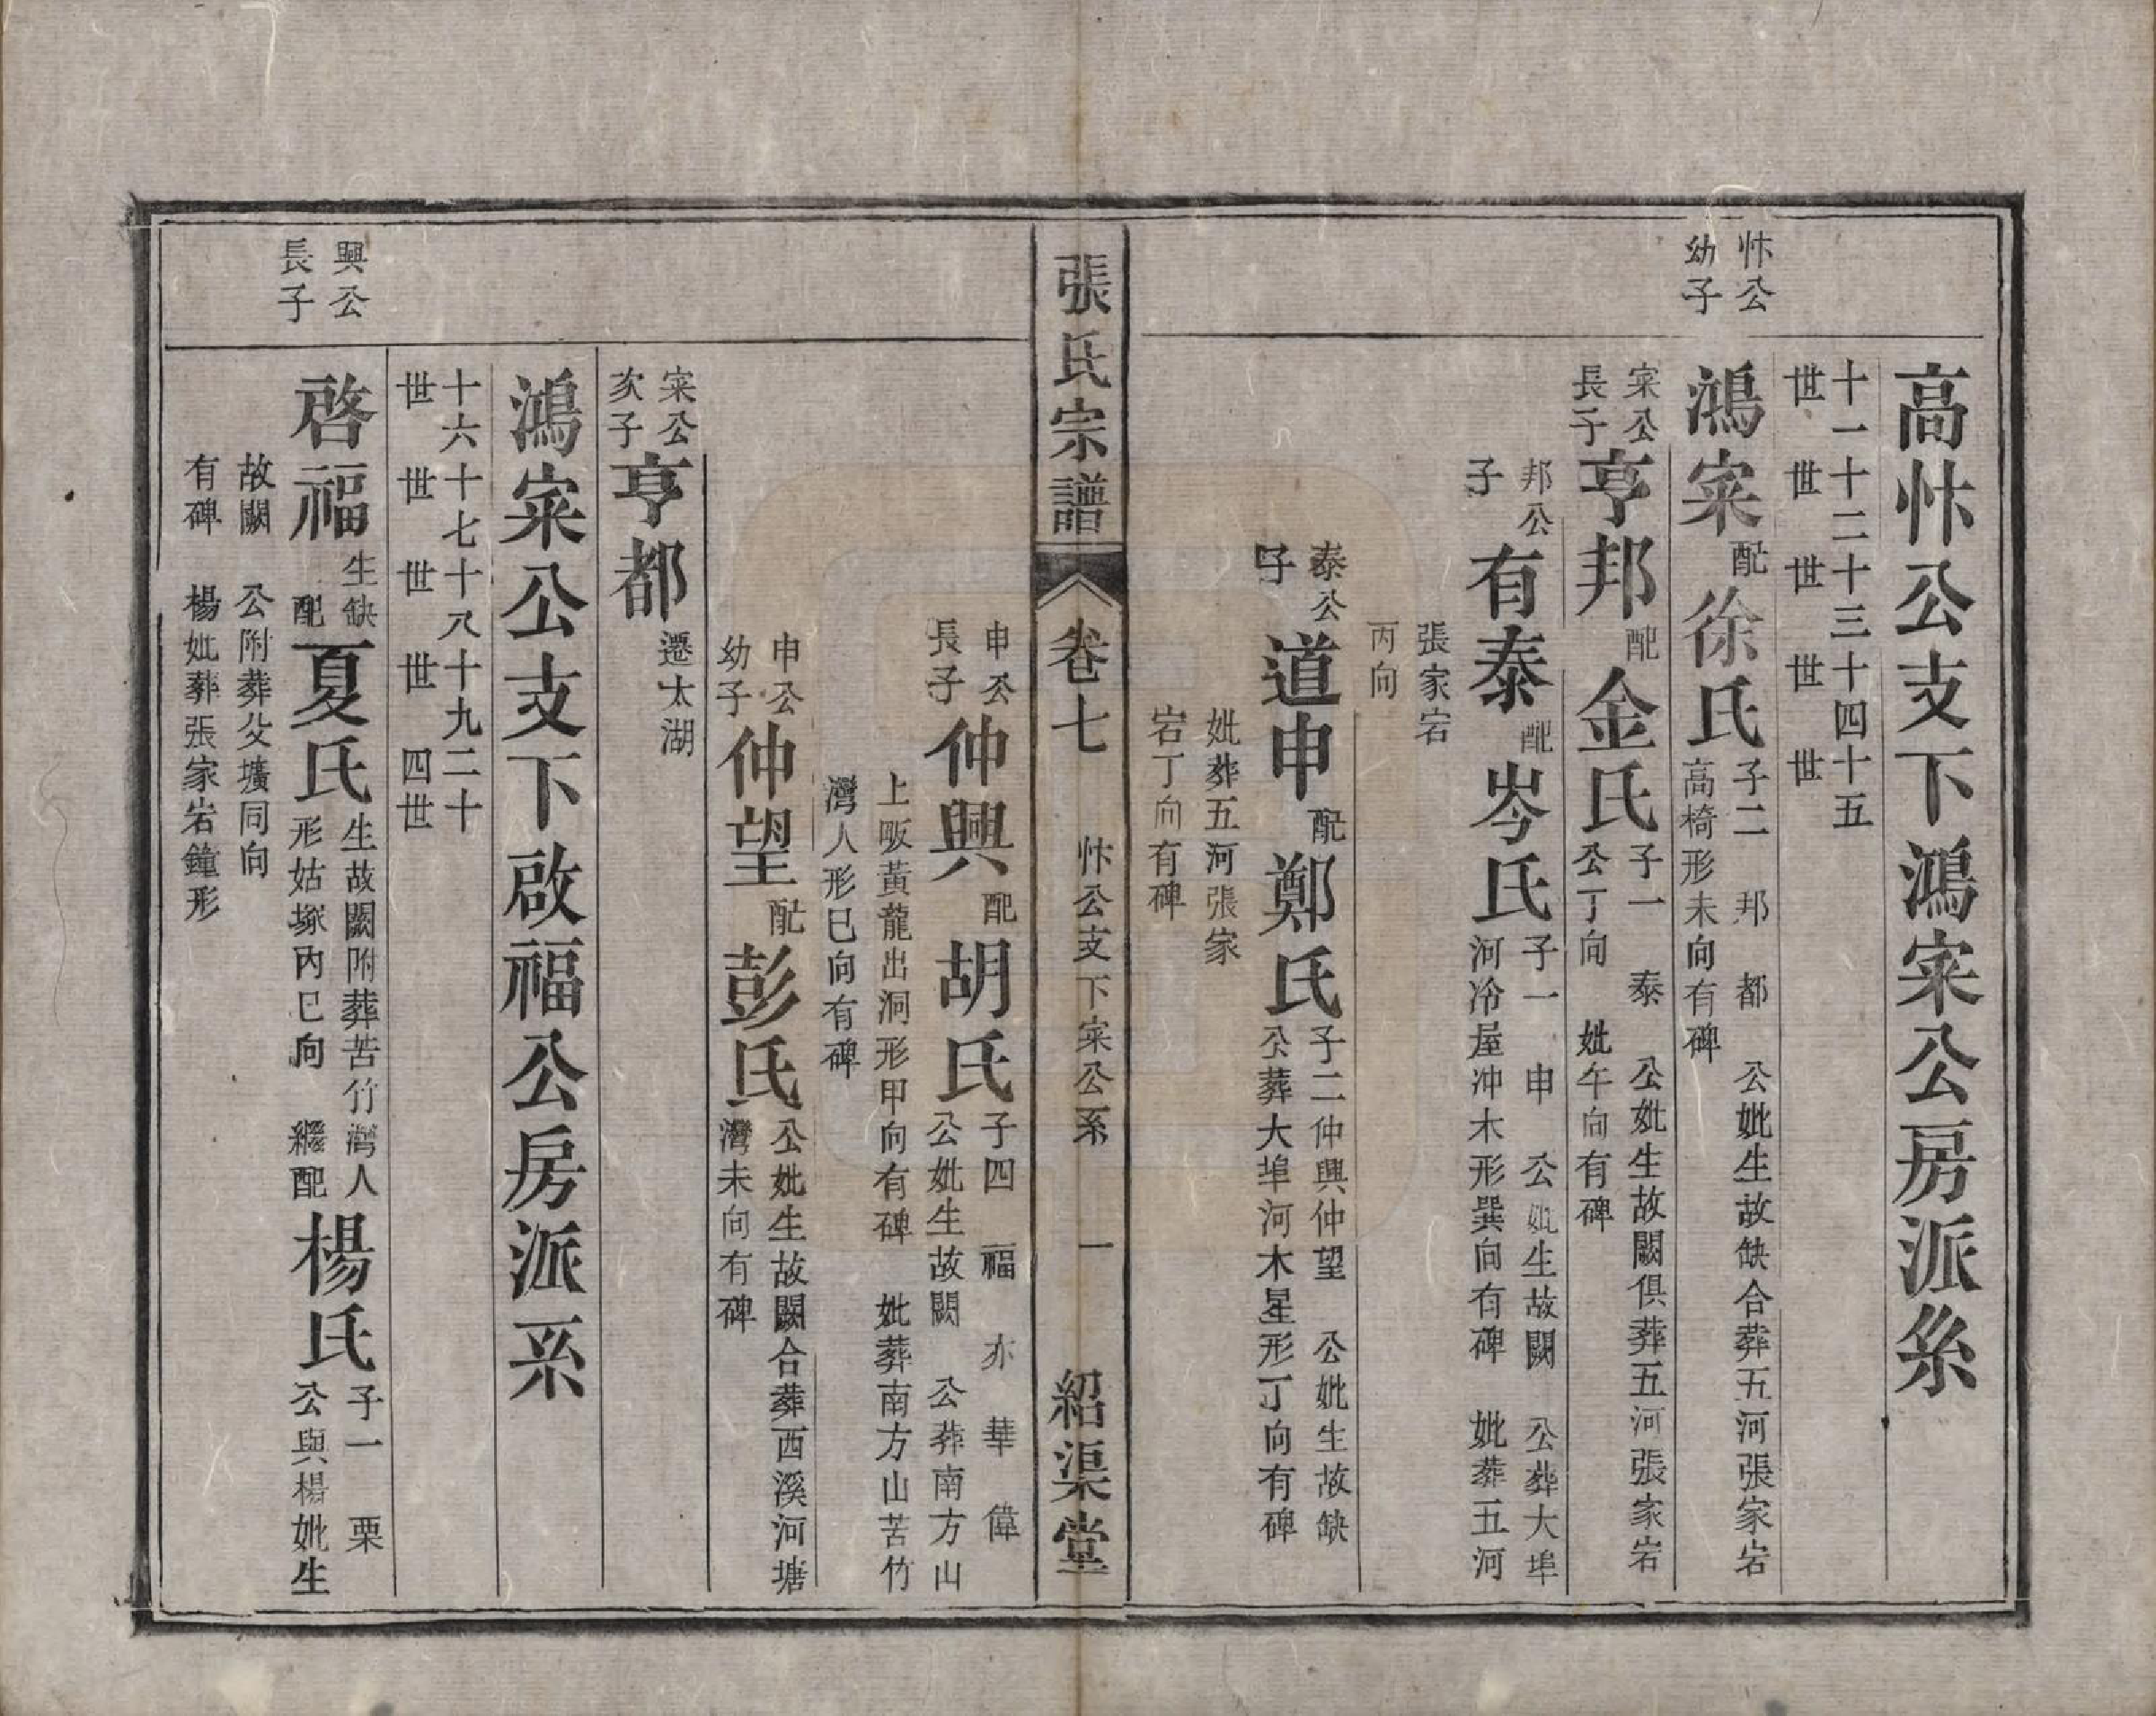 高忭公支下鴻寀公房派系
十一十二十三十四十五
世 世 世 世 世
忭公
幼子
鴻寀
配
徐氏
子二 邦 都 公妣生故缺合葬五河張家岩
高椅形未向有碑
寀公
長子
亨邦
配
金氏
子一 泰 公妣生故闕俱葬五河張家岩
公丁向 妣午向有碑
邦公
子
有泰
配
岑氏
子一 申 公妣生故闕 公葬大埠
河冷屋冲木形巽向有碑 妣葬五河
張家岩
丙向
泰公
子
道申
配
鄭氏
子二仲興仲望 公妣生故缺
公葬大埠河木星形丁向有碑
妣葬五河張家
岩丁向有碑
張氏宗譜
卷七
忭公支下寀公系
一
紹渠堂
申公
長子
仲興
配
胡氏
子四 福 亦 華 偉
公妣生故闕 公葬南方山
上畈黃龍出洞形甲向有碑 妣葬南方山苦竹
灣人形巳向有碑
申公
幼子
仲望
配
彭氏
公妣生故闕合葬西溪河塘
灣未向有碑
寀公
次子
亨都
遷太湖
鴻寀公支下啟福公房派系
十六十七十八十九二十
世 世 世 世 四世
興公
長子
啓福
生缺
配
夏氏
生故闕附葬苦竹灣人
形姑塚內巳向 繼配
楊氏
子一 栗
公與楊妣生
故闕 公附葬父壙同向
有碑 楊妣葬張家岩鐘形